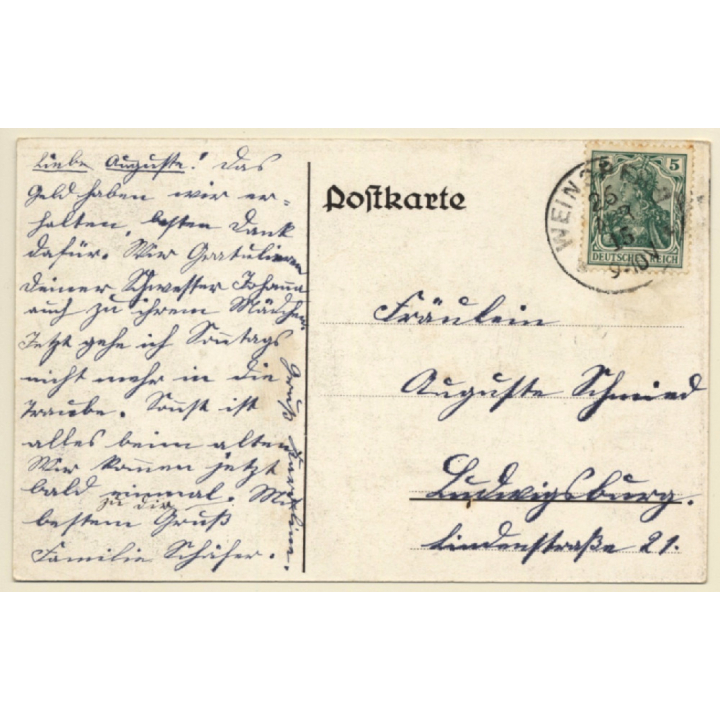 Liebe Auguste! Das
Geld haben wir er-
halten, besten Dank
dafür. Wir Gratulieren
Deiner Schwester Johanna
auch zu ihrem Mädchen.
Jetzt gehe ich Sonntags
nicht mehr in die
Traube. Sonst ist
alles beim alten
Wir kommen jetzt
bald einmal. Mit
zu dir
bestem Gruß
Familie Schäfer.
Gruß
Postkarte
5 5
DEUTSCHES REICH
WEINSBERG
26
15
9-10V
Fräulein
Auguste Schmied
Ludwigsburg.
Lindenstraße 21.